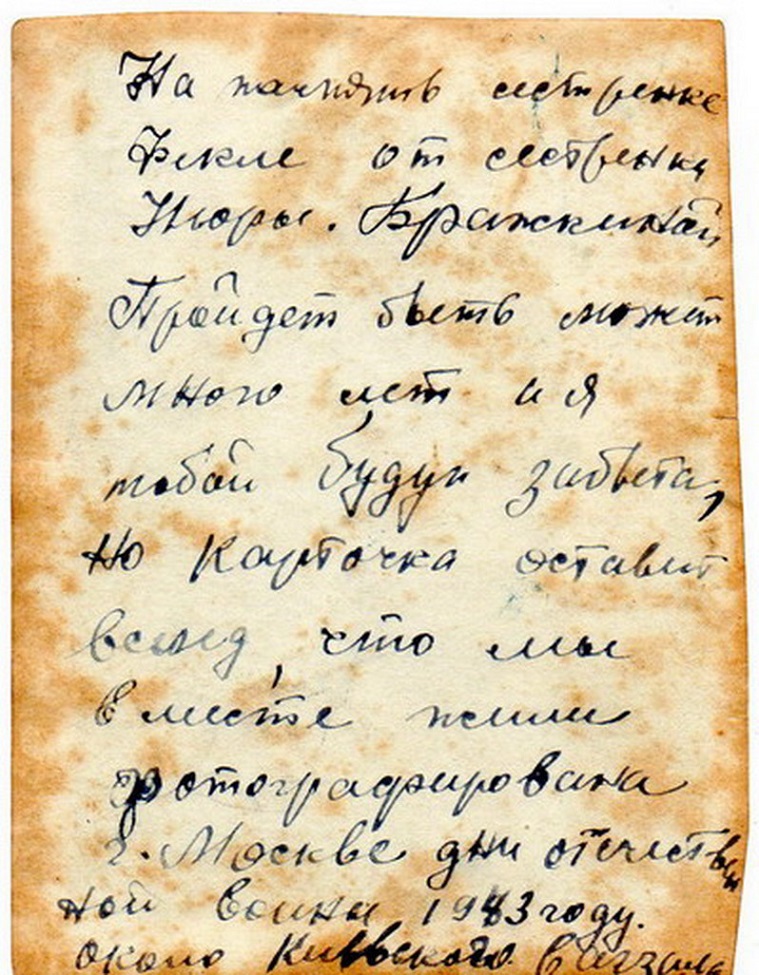 На память сестренке
Фекле от сестренки
Нюры. Бражкиной
Пройдет быть может
много лет и я
тобой буду забыта,
но карточка оставит
вслед, что мы
вместе жили
фотографирована
г. Москве дни отечествен
ной воины 1943 году.
около Киевского Вагзала